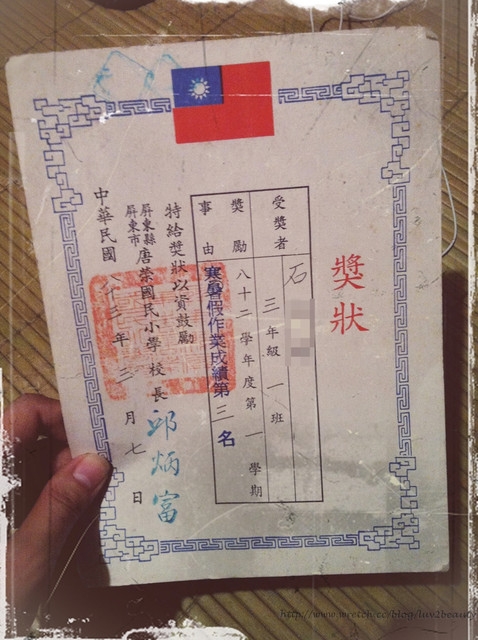 獎狀
受獎者
石
三年級一班
獎勵事由
八十二學年度第一學期
寒暑假作業成績第三名
特給獎狀以資鼓勵
屏東縣屏東市唐榮國民小學校長邱炳富
中華民國八十三年三月七日
http://www.wretch.cc/blog/luv2beauty